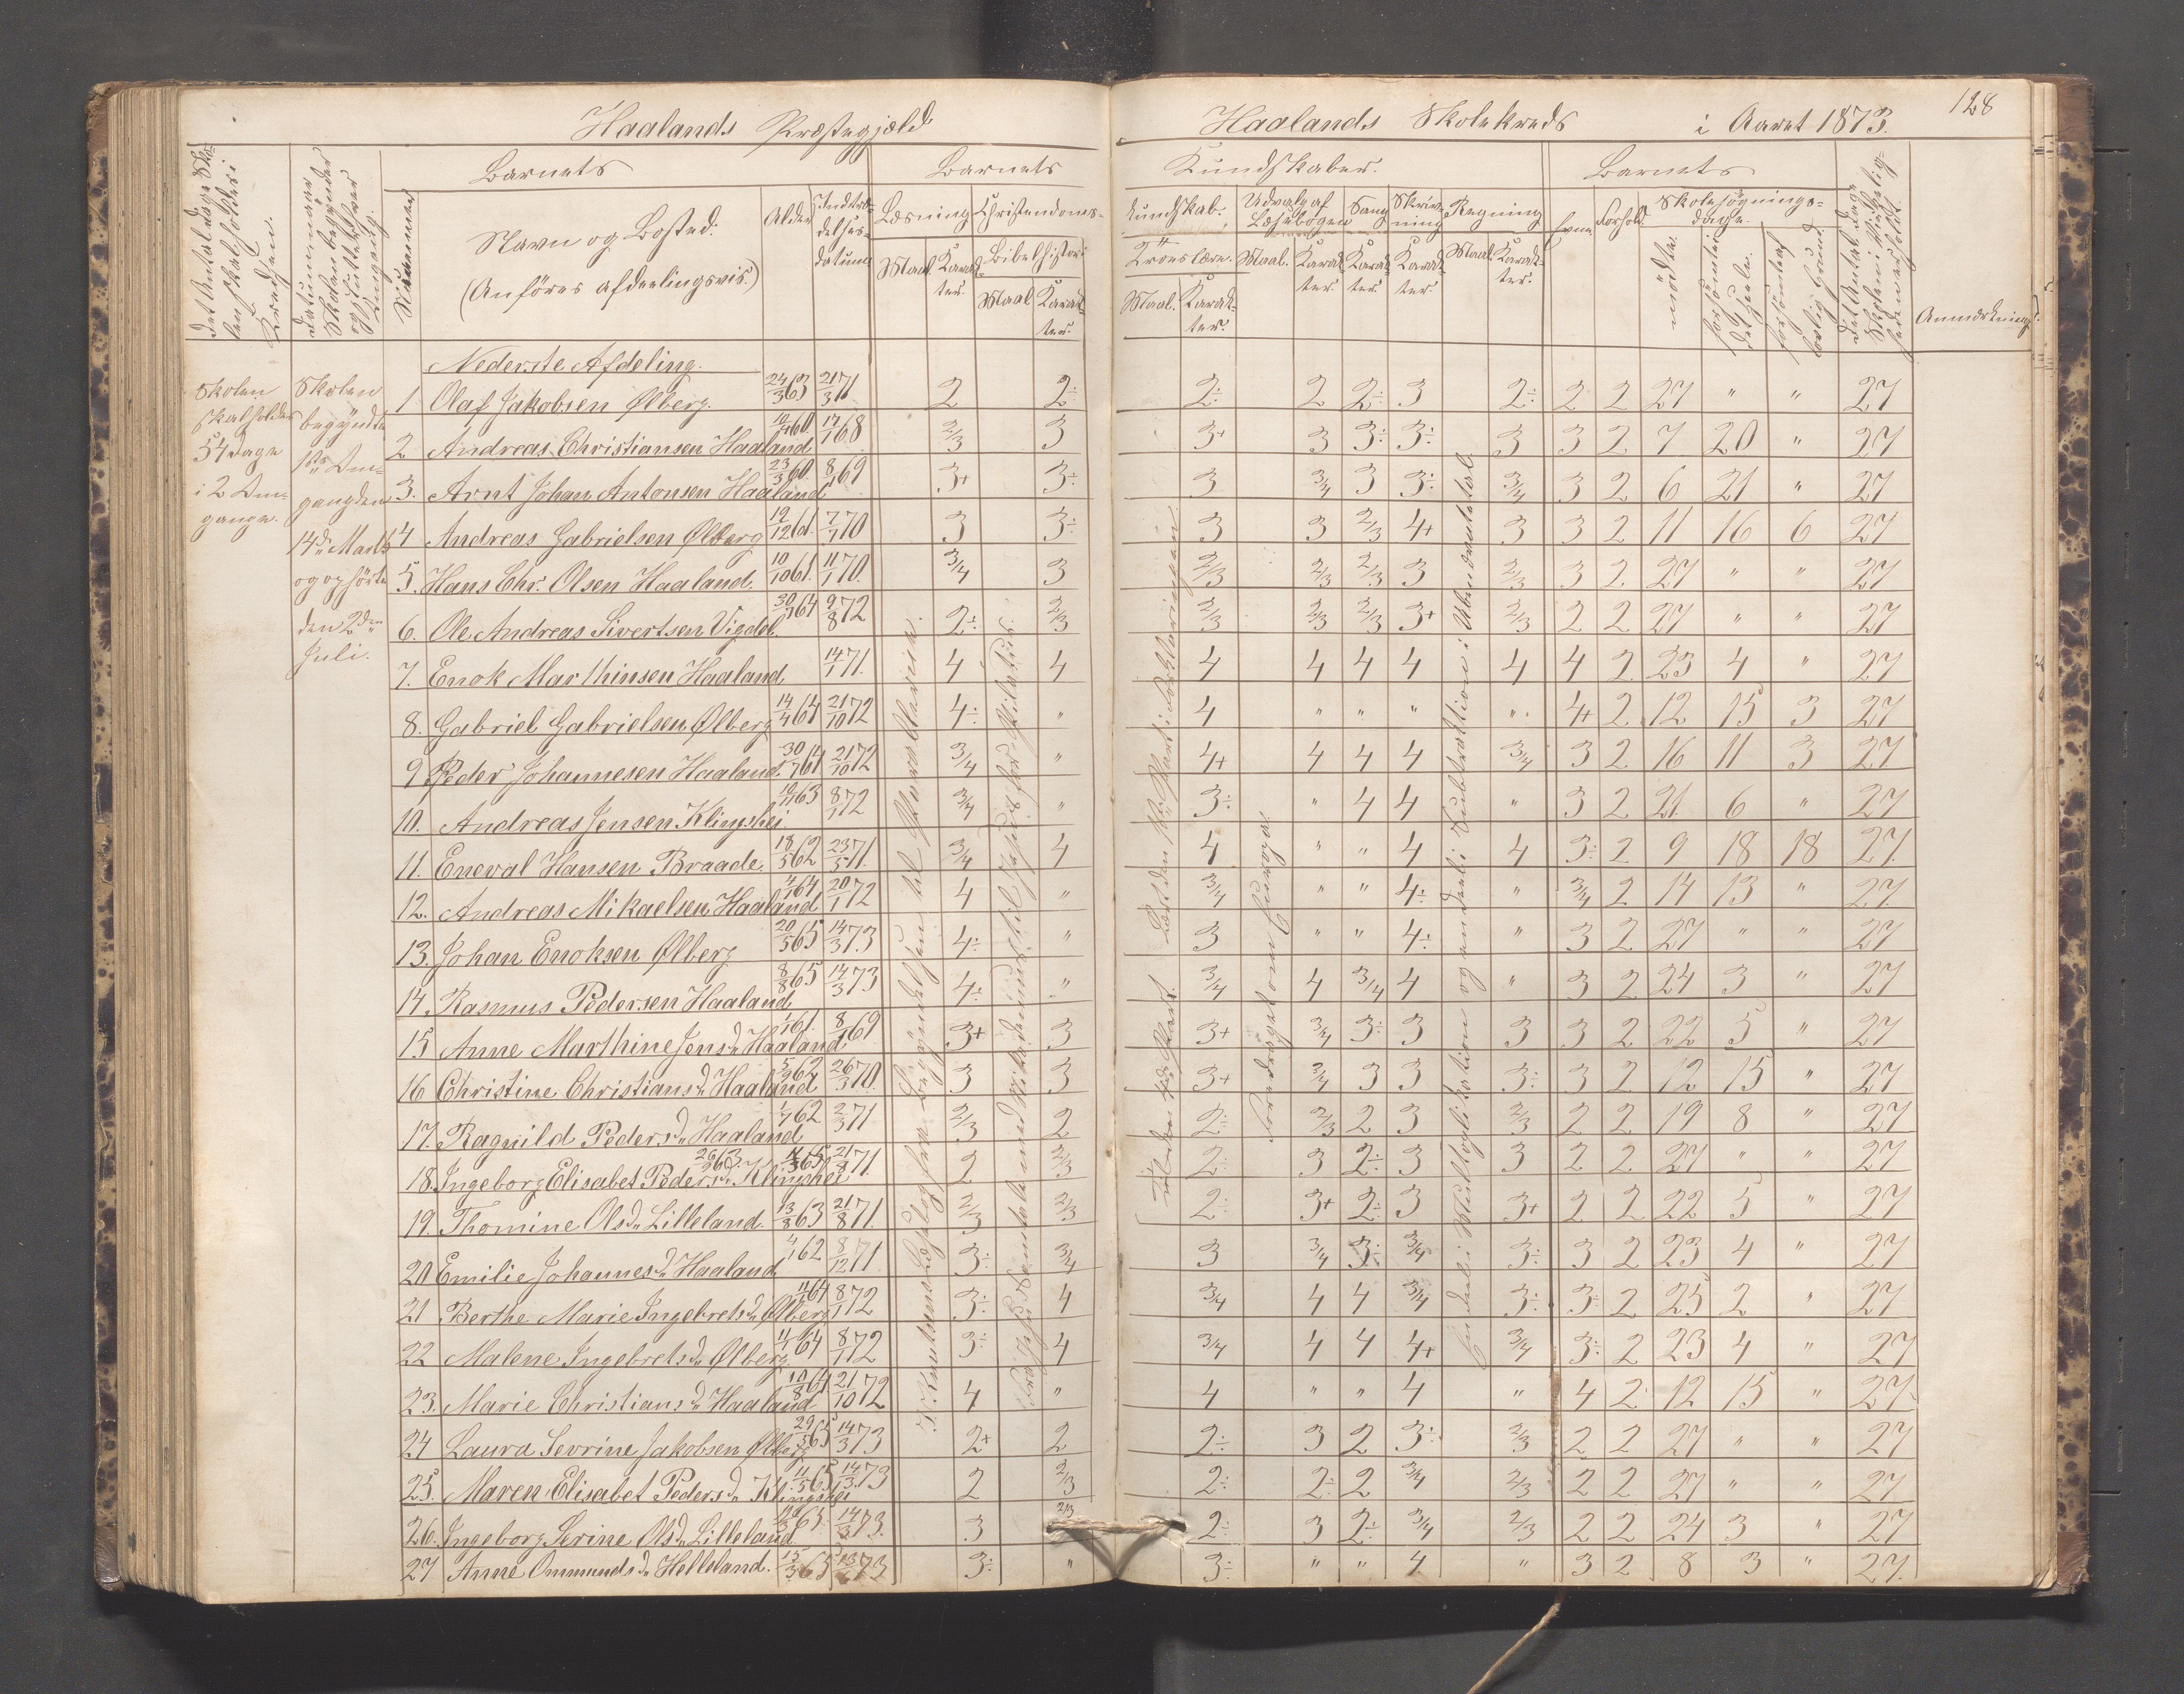 Haalands Præstegjæld
Haalands Skolekreds i Aaret 1873.
128
Det Antal Dage Skolen skal holdes i Kredsen.
Datum naar Skolen begynder og slutter hver Omgang.
Nummer
Barnets
Navn og Bosted:
(Anföres afdeelingsvis.)
Alder
Indtrædelsesdatum
Barnets
Læsning
Maal
Karakter.
Christendoms-
Bibelhistori
Maal
Karakter.
Kundskaber.
kundskab.
Troeslære.
Maal.
Karakter.
Udvalg af Læsebogen
Maal.
Karakter.
Sang
Karakter.
Skrivning
Karakter.
Regning
Maal.
Karakter.
Barnets
Evne
Forhold.
Skolesøgningsdage.
mödte.
forsömte i det hele.
forsömte af lovlig Grund.
Det Antal Dage Skolen i Virkeligheden er holdt.
Anmærkning.
Skolen skal holdes 54 Dage i 2 Omgange.
Skolen begyndte 1ste Omgang den 14de Marts og ophörte den 2den Juli.
Nederste Afdeling.
1 Olaf Jakobsen Ølberg. 24/3 63 21/3 71 2 2÷ 2÷ 2 2÷ 3 2÷ 2 2 27 " " 27
2 Andreas Christiansen Haaland 60 17/1 68 2/3 3 3+ 3 3÷ 3÷ 3 3 2 7 20 " 27
3. Arnt Johan Antonsen Haaland 23/3 60 8/1 69 3+ 3÷ 3 3/4 3 3÷ 3/4 3 2 6 21 " 27
4 Andreas Gabrielsen Ølberg 19/12 61. 7/1 70 3 3÷ 3 3 2/3 4+ 3 3 2 11 16 6 27
5. Hans Chr. Olsen Haaland. 10/10 61. 11/1 70. 3/4 3 2/3 2/3 2/3 3 2/3 3 2 27 " " 27
6. Ole Andreas Sivertsen Vigdel 30/7 64 9/8 72 2÷ 2/3 2/3 2/3 2/3 3+ 2/3 2 2 27 " " 27
7. Enok Marthinsen Haaland 14/1 71. 4 4 4 4 4 4 4 4 2 23 4 " 27
8. Gabriel Gabrielsen Ølberg 14/4 64 21/10 72 4÷ " 4 " " " " 4+ 2 12 15 3 27
9 Peder Johannesen Haaland. 30/7 64 21/10 72 3/4 " 4+ 4 4 4 3/4 3 2 16 11 3 27
10. Andreas Jensen Klingshei 63 8/1 72 3/4 " 3÷ " 4 4 " 3 2 21 6 " 27
11. Eneval Hansen Braade. 18/5 62 23/5 71. 3/4 4 4 " " 4 4 3÷ 2 9 18 18 27
12. Andreas Mikaelsen Haaland 4/1 64 20/1 72 4 " 3/4 " " 4÷ " 3/4 2 14 13 " 27
13. Johan Enoksen Ølberg 20/5 65 14/3 73 4÷ " 3 " " 4÷ " 3 2 27 " " 27
14. Rasmus Pedersen Haaland 8/8 65 14/3 73 4÷ " 3/4 4 3/4 4 " 3 2 24 3 " 27
15 Anne Marthine Jensd. Haaland 61. 8/1 69 3+ 3 3+ 3/4 3÷ 3 3 3 2 22 5 " 27
16 Christine Christiansd. Haaland 62 26/3 70. 3 3 3+ 3/4 3 3 3÷ 3 2 12 15 " 27
17. Ragnild Pedersd. Haaland 1/7 62 2/3 71 2/3 2 2÷ 2/3 2 3 2/3 2 2 19 8 " 27
18. Ingeborg Elisabet Pedersd. Klingshei 21/8 71. 2 2/3 2÷ 3 2÷ 3 3 2 2 27 " " 27
19. Thomine Olsd. Lilleland. 13/3 63 21/8 71. 2/3 2/3 2÷ 3+ 2÷ 3 3+ 2 2 22 5 " 27
20 Emilie Johannesd. Haaland 4/1 62 8/12 71. 3÷ 3/4 3 3/4 3÷ 3/4 3÷ 3 2 23 4 " 27
21 Berthe Marie Ingebretsd. Ølberg 64 8/1 72 3÷ 4 3/4 4 4 3/4 3÷ 3÷ 2 25 2 " 27
22 Malene Ingebretsd. Ølberg 64 8/1 72 3÷ 4 3/4 4 4 4+ 3/4 3÷ 2 23 4 " 27
23. Marie Christiansd. Haaland 10/8 64 21/10 72 4 " 4 " " 4 " 4 2 12 15 " 27
24 Laura Sevrine Jakobsen Ølberg 65 14/3 73 2+ 2 2÷ 3 2 3÷ 2/3 2 2 27 " " 27
25. Maren Elisabet Pedersd. Klingshei 11/5 65 14/3 73 2 2/3 2÷ 2÷ 2 3/4 2/3 2 2 27 " " 27
26. Ingeborg Serine Olsd. Lilleland 65. 14/3 73. 3 2/3 2÷ 3 2÷ 3/4 2/3 2 2 24 3 " 27
27 Anne Ommundsd. Helleland. 15/3 65 73 3÷ " 3÷ " " 4 " 3 2 8 3 " 27.
Fordraget om Europa.